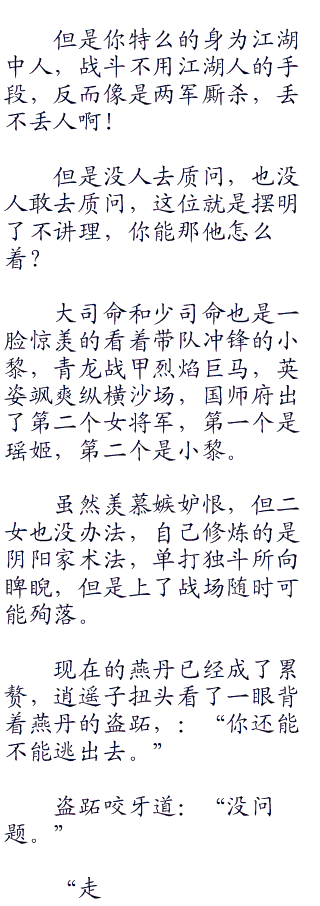 但是你特么的身为江湖
中人，战斗不用江湖人的手
段，反而像是两军厮杀，丢
不丢人啊！
但是没人去质问，也没
人敢去质问，这位就是摆明
了不讲理，你能那他怎么
着？
大司命和少司命也是一
脸惊羡的看着带队冲锋的小
黎，青龙战甲烈焰巨马，英
姿飒爽纵横沙场，国师府出
了第二个女将军，第一个是
瑶姬，第二个是小黎。
虽然羡慕嫉妒恨，但二
女也没办法，自己修炼的是
阴阳家术法，单打独斗所向
睥睨，但是上了战场随时可
能殉落。
现在的燕丹已经成了累
赘，逍遥子扭头看了一眼背
着燕丹的盗跖，：“你还能
不能逃出去。”
盗跖咬牙道：“没问
题。”
“走